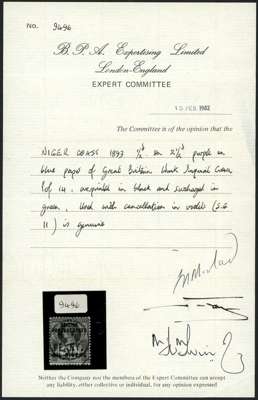 No. 9496
B. P. A. Expertising Limited
London-England
EXPERT COMMITTEE
15 FEB 1982
The Committee is of the opinion that the
NIGER COAST 1893 ½d on 2½d purple on
blue paper of Great Britain
of in, overprinted in black and surcharged in
green, Used with cancellation in violet (S.G
11) is genuine
9496
Neither the Company nor the members of the Expert Committee can accept
any liability, either collective or individual, for any opinion expressed